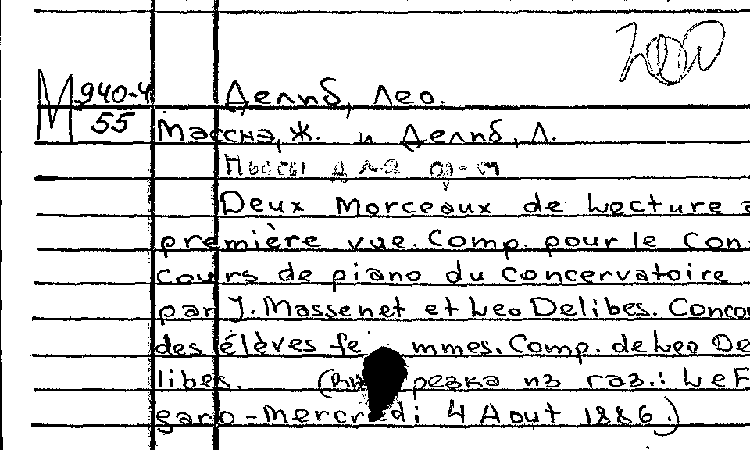 М 940-4
55
Делиб, Лео.
Массна, Ж. и Делиб, Л.
Пьесы для ф-п
Deux Morceaux de Lecture a
première vue. Comp. pour le Con-
cours de piano du Concervatoire
par J. Massenet et Leo Delibes. Concou
des élèves femmes. Comp. de Leo De
libes. (Вырезка из газ.: Le F
garo - Mercredi 4 Aout 1886.)